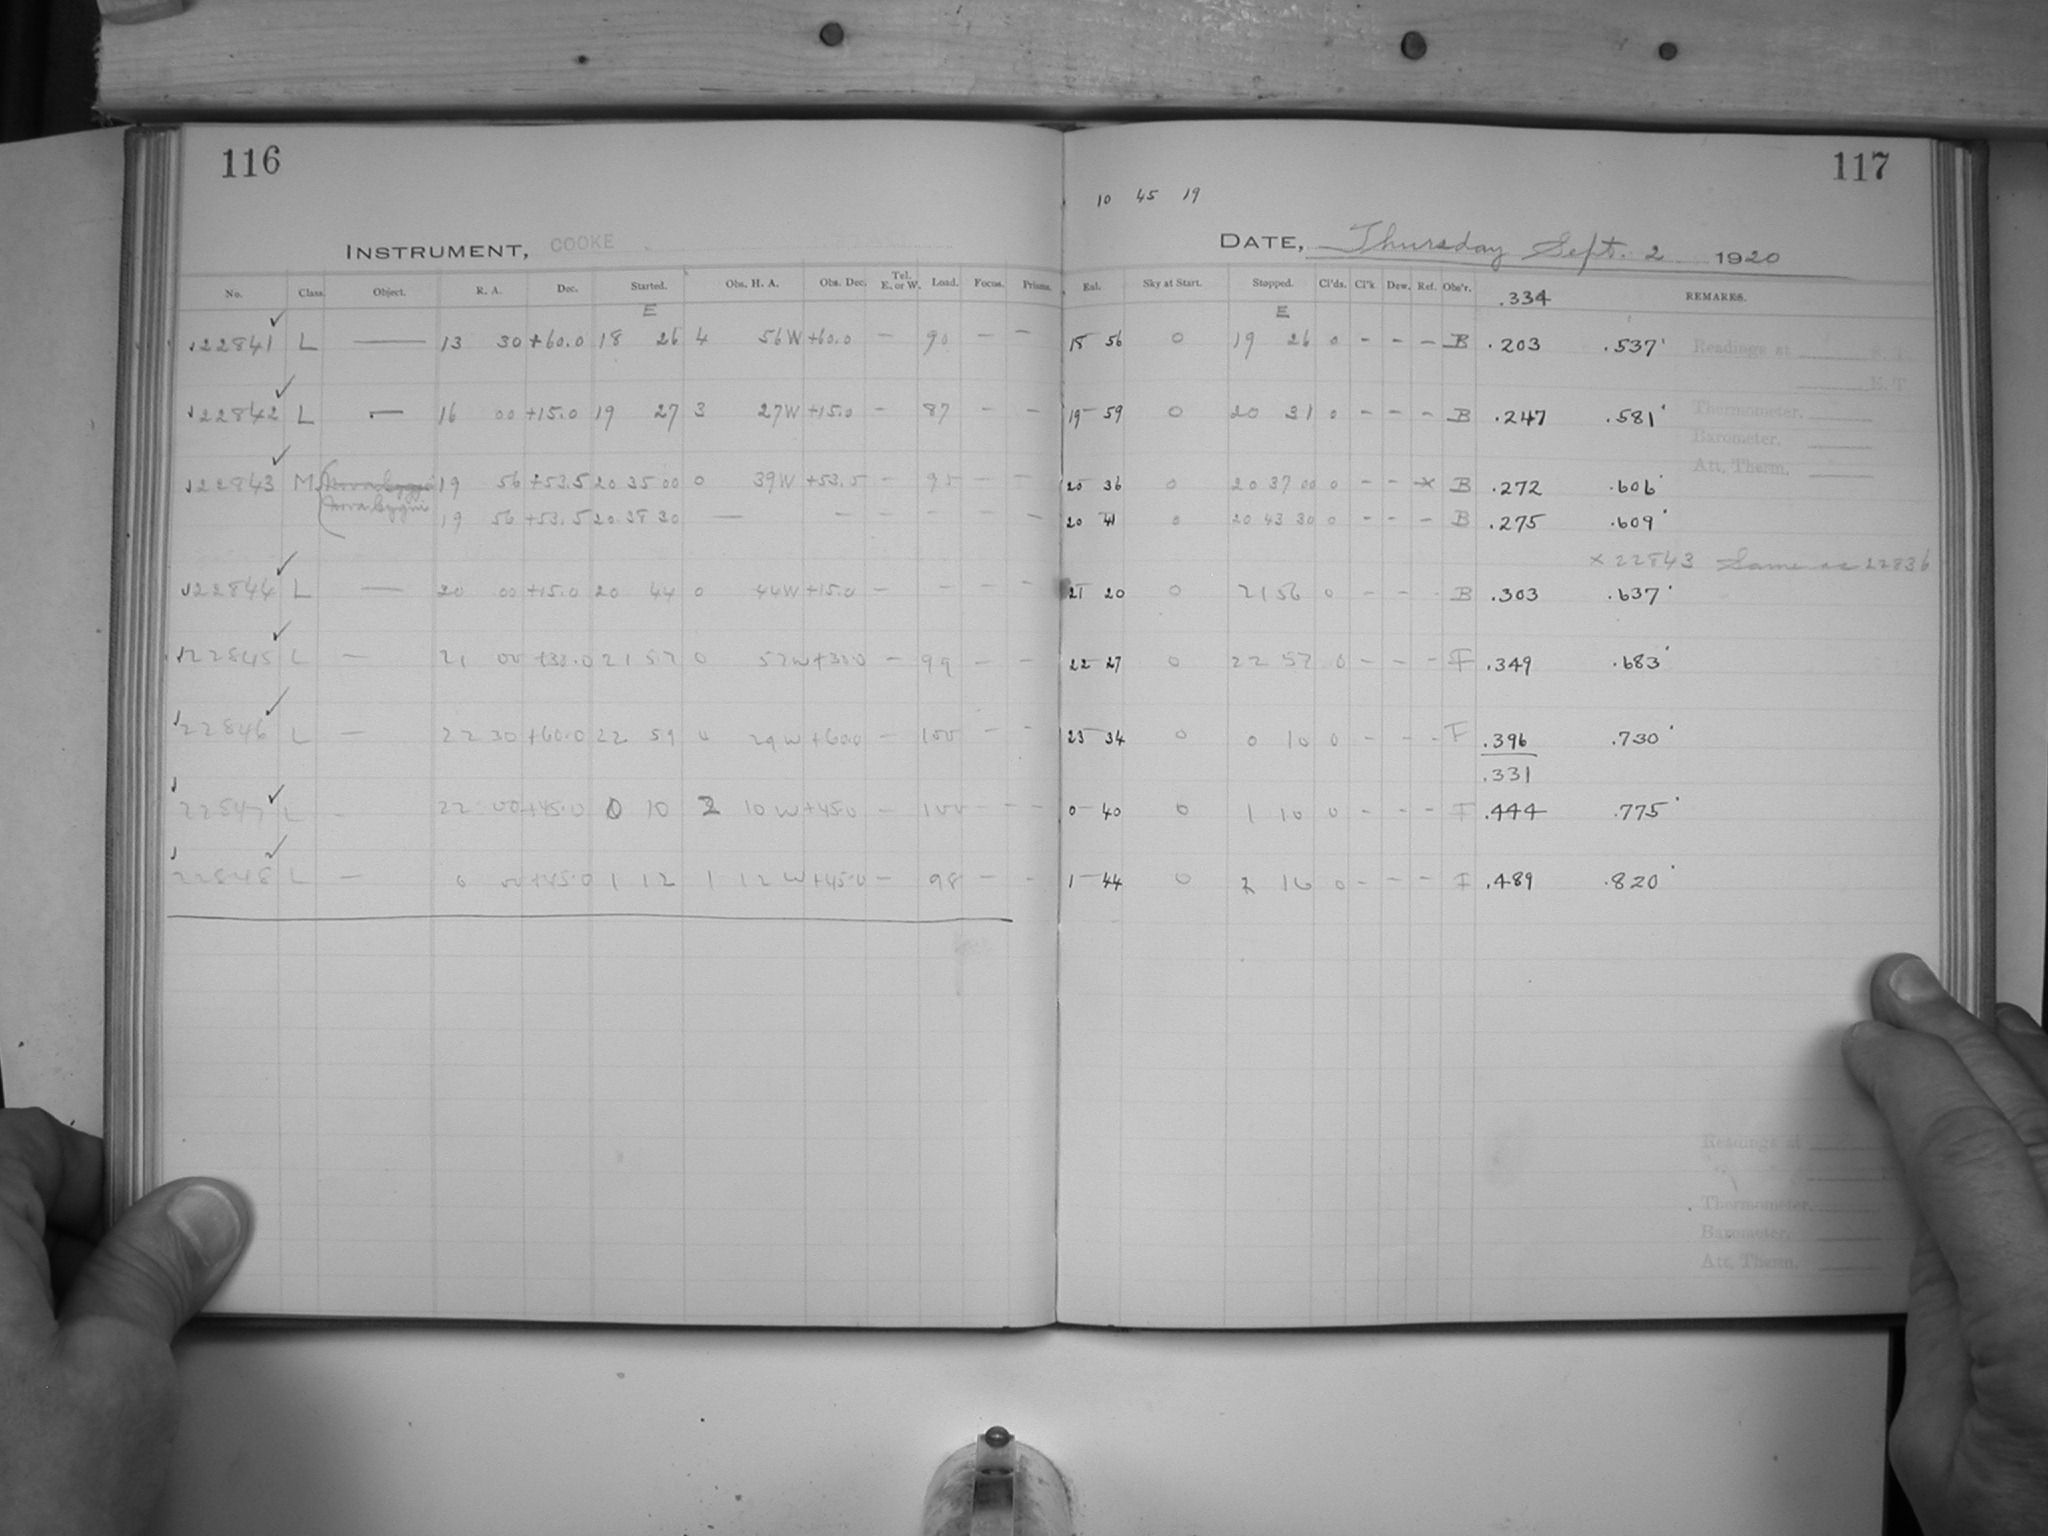 116
117
10 45 19
INSTRUMENT, COOKE
DATE, Thursday Sept. 2 1920
No. Class. Object. R. A. Dec. Started. Obs. H. A. Obs. Dec. Tel. E. or W. Load. Focus. Prisms. Exl. Sky at Start. Stopped. Cl'ds. Cl'k Dew. Ref. Obs'r. .334 REMARKS.
E E
22841 L — 13 30 +60.0 18 26 4 56 W +60.0 — 90 — — 18 56 0 19 26 0 - - - B .203 .537 Readings at S. T.
M. T.
22842 L — 16 00 +15.0 19 27 3 27 W +15.0 - 87 - - 19 59 0 20 31 0 - - - B .247 .581 Thermometer,
Barometer,
Att. Therm.
22843 M 19 56 +53.5 20 35 00 0 39 W +53.5 - 95 - - 20 36 0 20 37 00 0 - - x B .272 .606
Nova Cygni 19 56 +53.5 20 38 30 — - - - - - 20 41 0 20 43 30 0 - - - B .275 .609
x 22843 Same as 22836
22844 L — 20 00 +15.0 20 44 0 44 W +15.0 - - - - 21 20 0 21 56 0 - - B .303 .637
22845 L — 21 00 +30.0 21 57 0 57 W +30.0 - 99 - - 22 27 0 22 57 0 - - - F .349 .683
22846 L — 22 30 +60.0 22 59 0 29 W +60.0 - 100 - - 23 34 0 0 10 0 - - - F .396 .730
.331
22847 L - 22 00 +45.0 0 10 2 10 W +45.0 - 100 - - 0 40 0 1 10 0 - - - F .444 .775
22848 L — 0 00 +45.0 1 12 1 12 W +45.0 - 98 - - 1 44 0 2 16 0 - - - F .489 .820
Readings at
Thermometer,
Barometer,
Att. Therm.